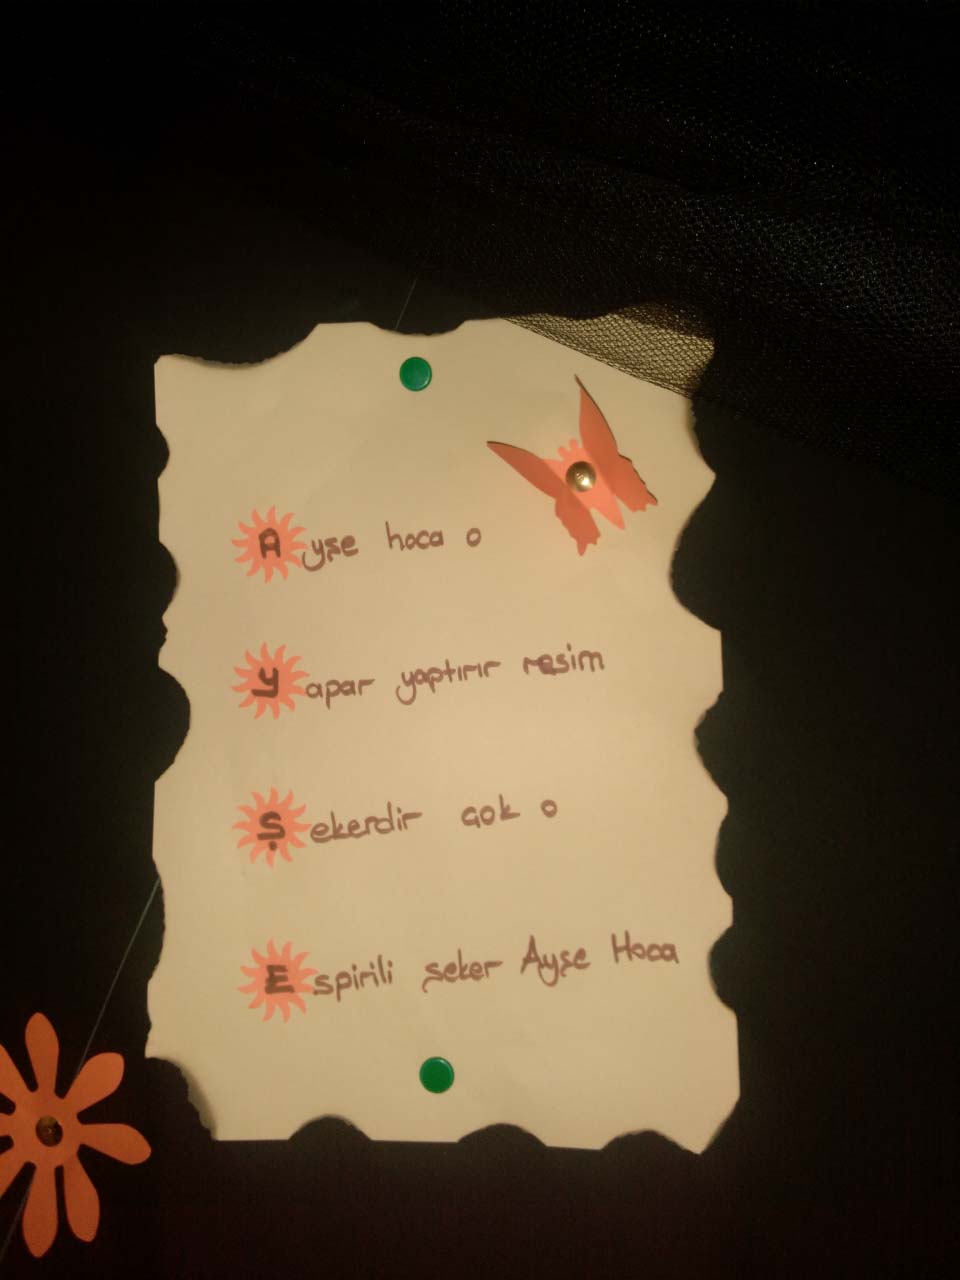 Ayşe hoca o
Yapar yaptırır resim
Şekerdir çok o
Espirili şeker Ayşe Hoca